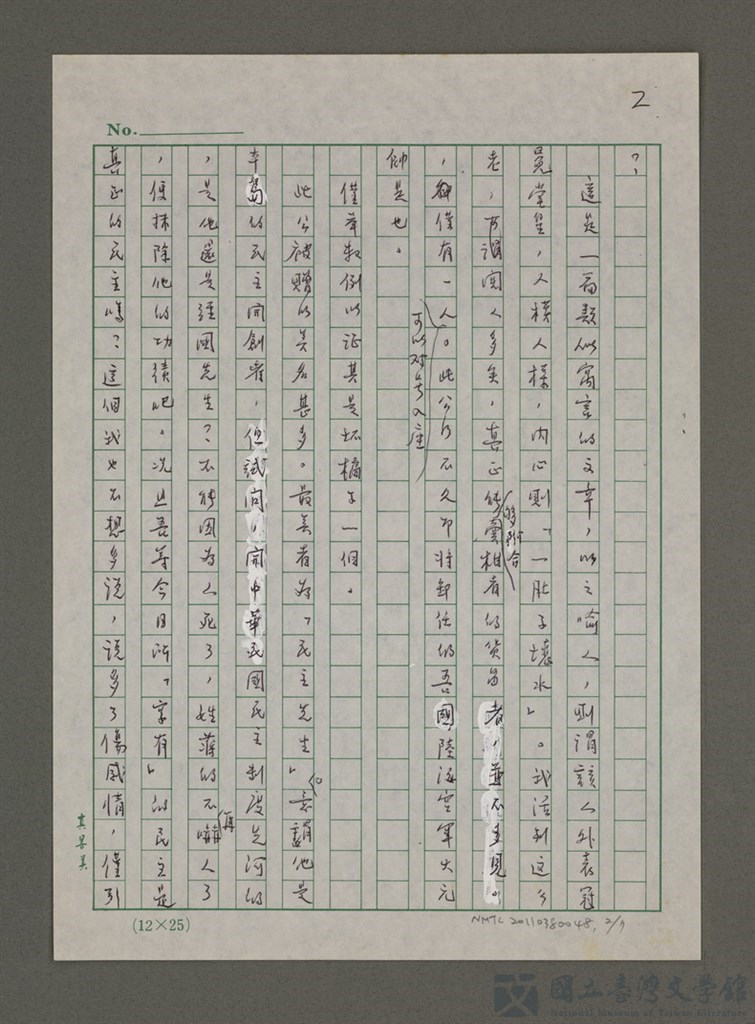 2
No.
?
這是一篇類似寓言的文章,以之喻人,則謂該人外表冠
冕堂皇,人模人樣,內心則「一肚子壞水」。我活到這么
老,可謂閱人多矣,真正能夠符合相者的貨色者,並不多見。
,僅有一人。此公乃不久即將卸任的吾國陸海空軍大元
可以對号入座
帥是也。
僅舉数例以证其是坏橘子一個。
此公被贈以美名甚多。最美者為「民主先生」意謂他是
辛勞的民主開創者,但試問,開中華民國民主制度先河的
,是他還是經國先生?不能因為人死了,姓蔣的不再人了
,便抹除他的功績吧。况且吾等今日所「享有」的民主是
真正的民主嗎?這個我也不想多说,说多了傷感情,僅引
其異美
(12×25)
NMTL 20110380048, 2/9
國立臺灣文學館
National Museum of Taiwan Literature